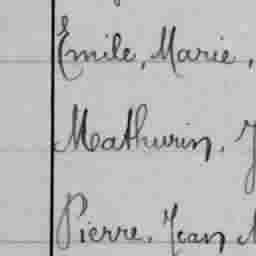 Emile, Marie,
Mathurin, J
Pierre, Jean M